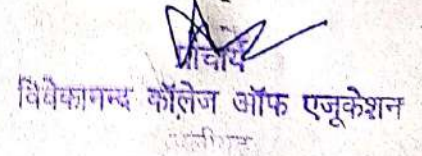 प्राचार्य
विवेकानन्द कॉलेज ऑफ एजूकेशन